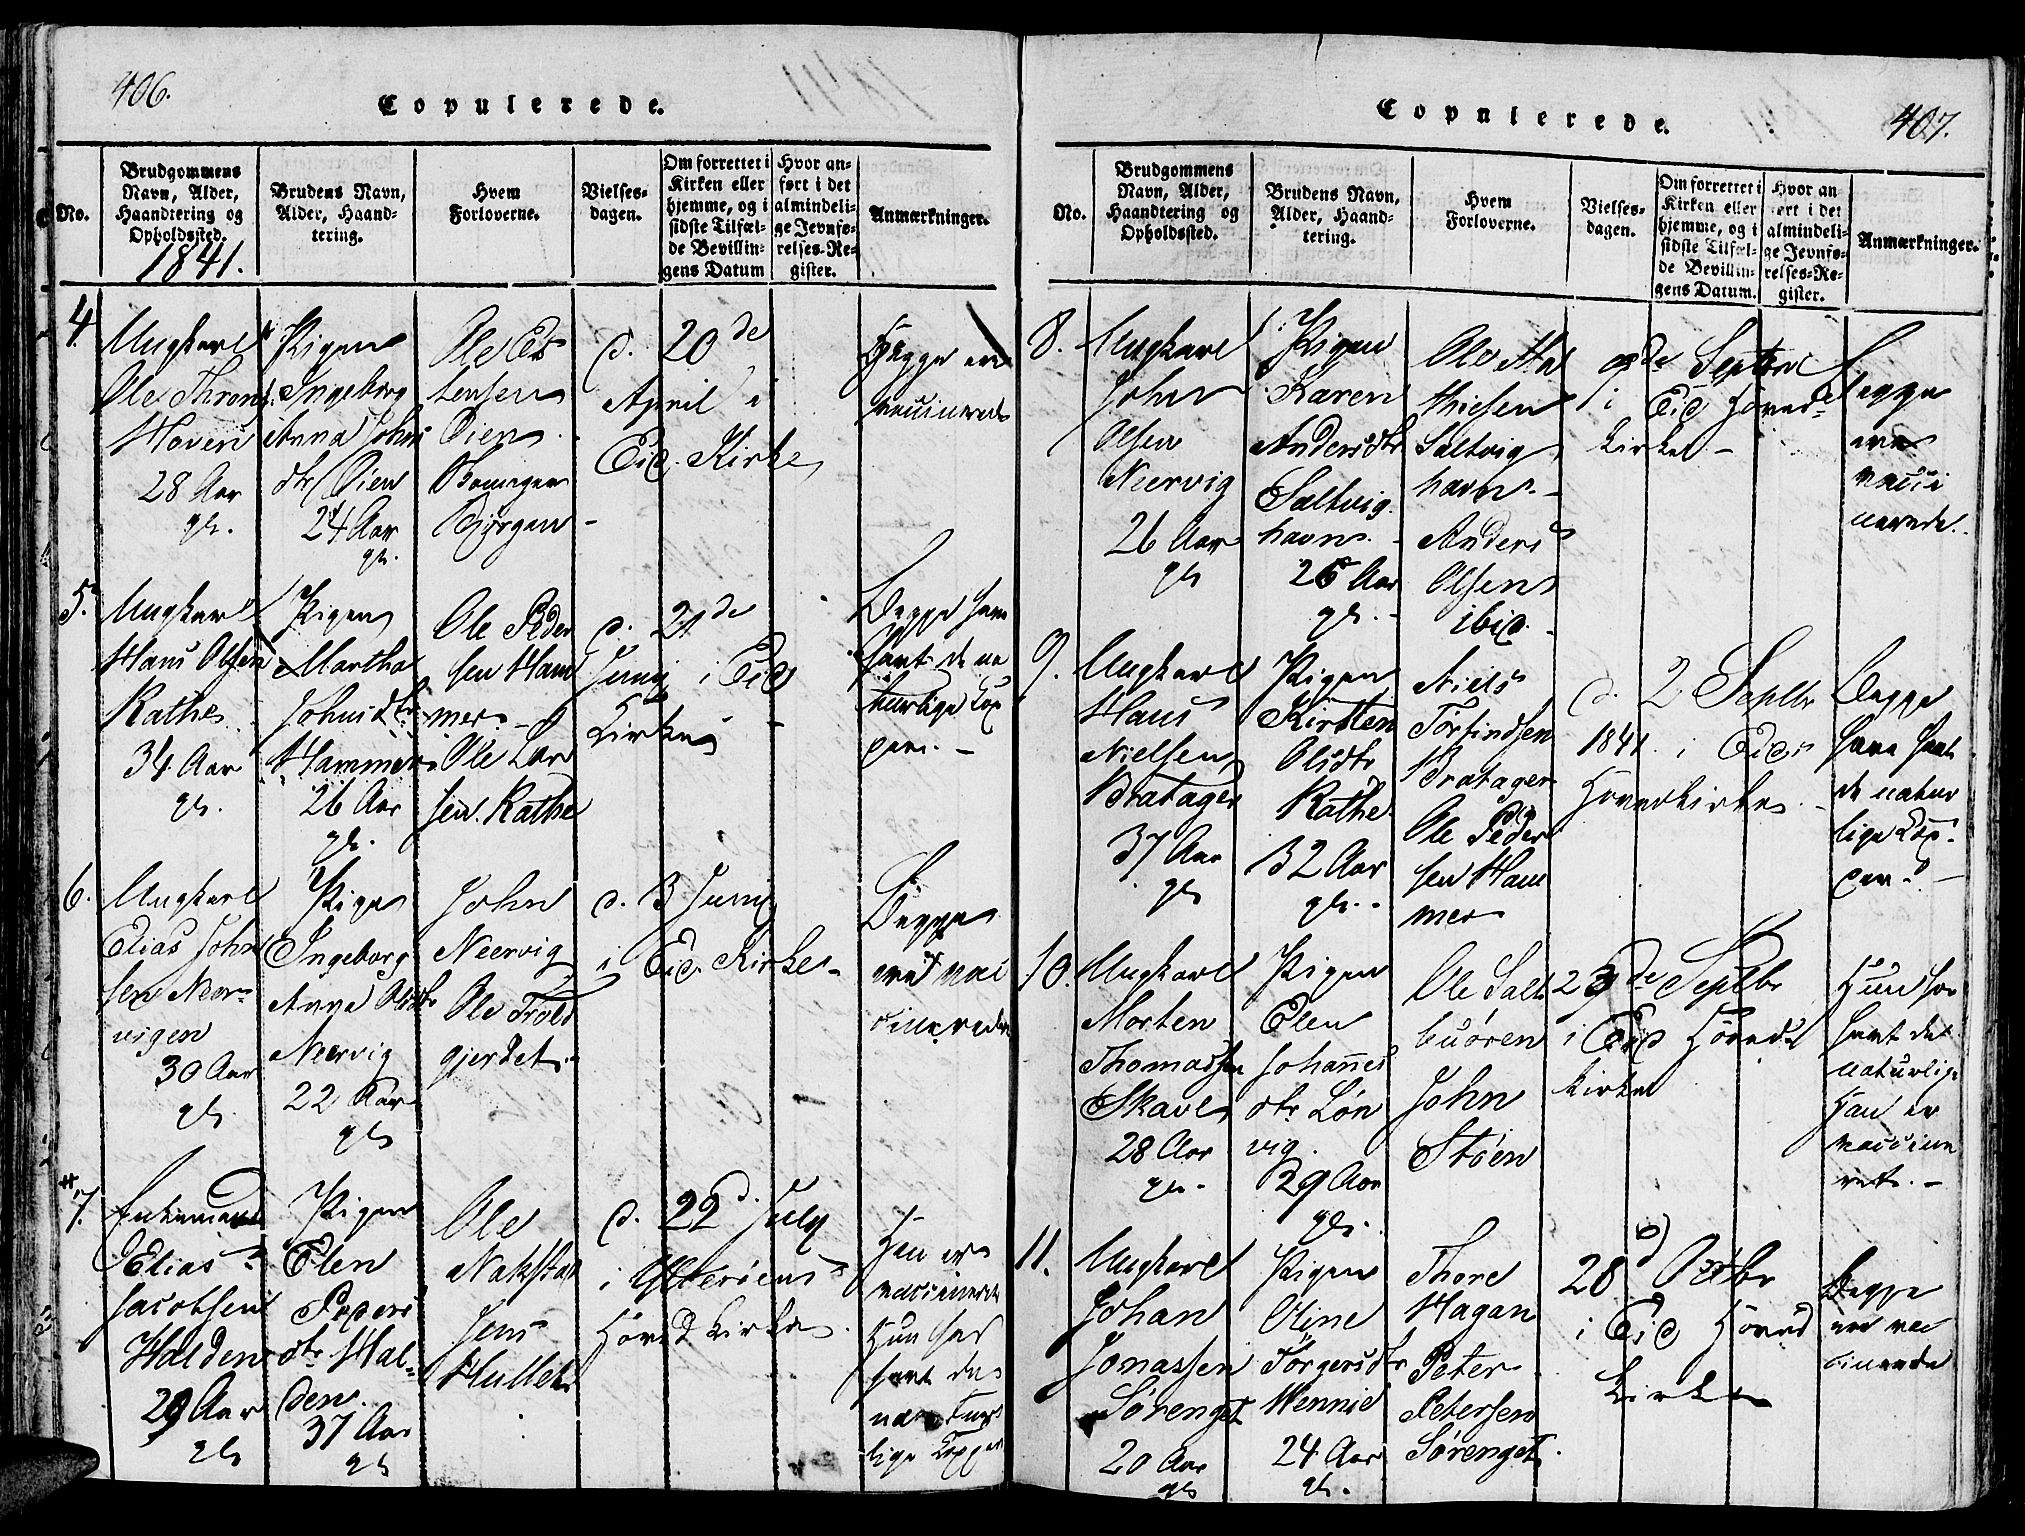 406.
Copulerede.
No.
Brudgommens
Navn, Alder,
Haandtering og
Opholdssted.
1841.
Brudens Navn,
Alder, Haand-
tering.
Hvem
Forloverne.
Vielses-
dagen.
Om forrettet i
Kirken eller
hjemme, og i
sidste Tilfæl-
de Bevillin-
gens Datum
Hvor an-
ført i det
almindeli-
ge Jevnfø-
relses-Re-
gister.
Anmærkninger.
4.
Ungkarl
Ole Thrond.
Hoven
28 Aar
Pigen
Ingeborg
Anna Johns
dtr Øien
24 Aar
Ole
tensen
Øien
Bjørgan
d. 20de
April i
Eid Kirke
Begge ere
vaccinerede
5.
Ungkarl
Hans Olsen
Rathe
34 Aar
Pigen
Martha
Johnsdtr
Hammer
26 Aar
Ole Peder
sen Ham
mer
Ole Lar
sen Rathe
d. 21de
Junij i Eid
Kirke
Begge have
havt de na
turlige Kop
per. -
6.
Ungkarl
Elias John
sen Neer-
vigen
30 Aar
Pige
Ingeborg
Anna Olsdtr
Neervig
22 Aar
John
Neervig
Ole Trold
gjerdet
d. 3 Junij
i Eid Kirke -
Begge
ere vac
cinerede
7.
Enkemand
Elias
Jacobsen
Halden
29 Aar
Pigen
Elen
Peders
dtr Hal-
den.
37 Aar
Ole
Nakstad
Jens
Hullet
d. 22d. July
i Ytterøens
Hoved Kirke
Han er
vaccineret
Hun har
havt de
natur
lige Kopper
Copulerede.
407.
No.
Brudgommens
Navn, Alder,
Haandtering og
Opholdssted.
Brudens Navn,
Alder, Haand-
tering.
Hvem
Forloverne.
Vielses-
dagen.
Om forrettet i
Kirken eller
hjemme, og i
sidste Tilfæl-
de Bevillin-
gens Datum.
Hvor an
ført i det
almindeli-
ge Jevnfø-
relses-Re-
gister.
Anmærkninger.
8.
Ungkarl
John
Olsen
Neervig
26 Aar
Pigen
Karen
Andersdtr
Saltvig
havn
26 Aar
Ole Ma
thiesen
Saltvig
havn -
Anders
Olsen
ibid.
9de Septbr
i Eid Hoved-
kirke -
Begge
ere
vacci
nerede.
9.
Ungkarl
Hans
Nielsen
Bratager
37 Aar
Pigen
Kirsten
Olsdtr
Rathe
32 Aar
Niels
Torfindsen
Bratager
Ole Peder
sen Ham
mer
d. 2 Septbr
1841. i Eids
Hovedkirke -
Begge
have havt
de natur
lige Kop-
per. -
10.
Ungkarl
Morten
Thomassen
Skavl
28 Aar
Pigen
Elen
Johannes
dtr Løn
vig
29 Aar
Ole Salt
buøren
John
Støen
23de Septbr
i Eid Hoved
kirke
Hun har
havt de
naturlige
Han er
vaccine
ret. -
11.
Ungkarl
Johan
Jonassen
Sørenget
20 Aar
Pigen
Oline
Torgersdtr
Wennie
24 Aar
Thore
Hagan
Peter
Petersen
Sørenget.
28d Octbr
i Eid Hoved
Kirke
Begge
ere vac
cinerede